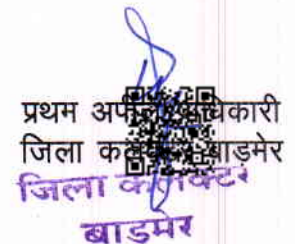 प्रथम अपीलीय अधिकारी
जिला कलक्टर बाड़मेर
जिला कलक्टर
बाडमेर